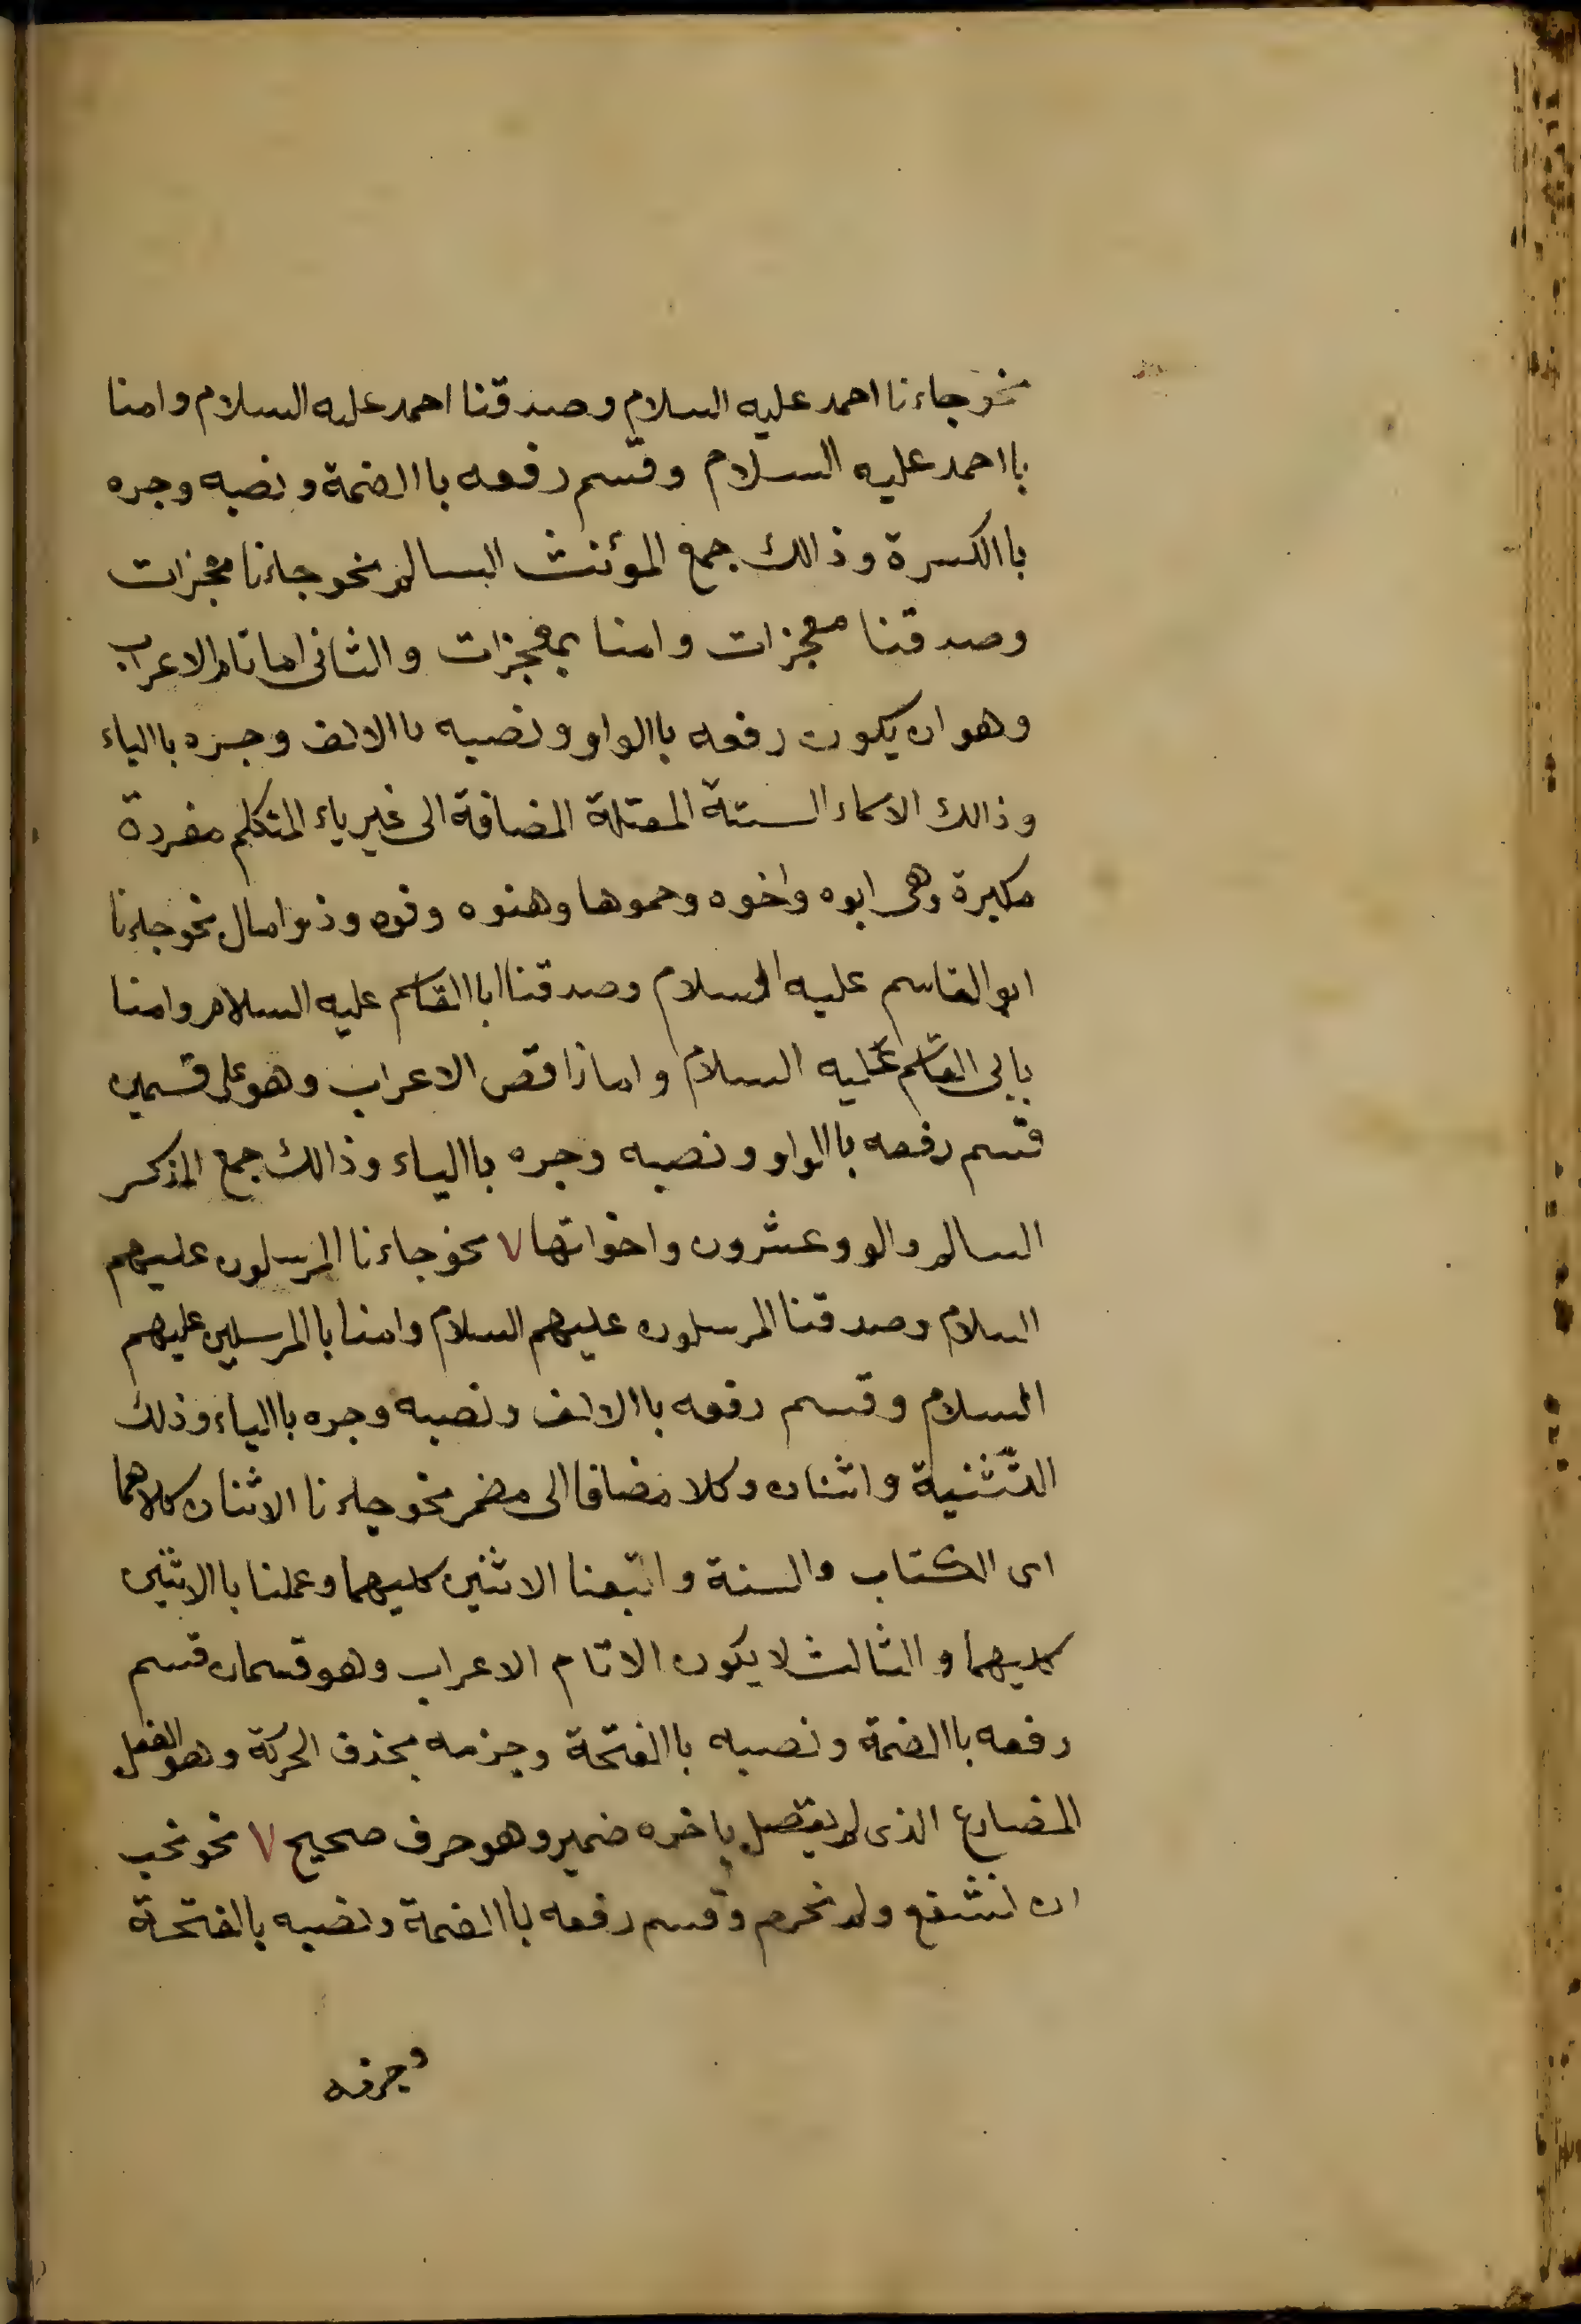 نحو جاءنا احمد عليه السلام وصدقنا احمد عليه السلام وامنا
بااحمد عليه السلام وقسم رفعه باالضمة ونصبه وجره
باالكسرة وذالك جمع المؤنث السالم نحو جاءنا معجزات
وصدقنا معجزات وامنا بمعجزات والثانى اما تام الاعراب
وهو ان يكون رفعه باالواو ونصبه باالالف وجره باالياء
وذالك الاسماء الستة المعتلة المضافة الى غير ياء المتكلم مفردة
مكبرة وهى ابوه واخوه وحموها وهنوه وفوه وذوامال نحو جاءنا
ابوالقاسم عليه السلام وصدقنا اباالقاسم عليه السلام وامنا
بابى القاسم عليه السلام واما ناقص الاعراب وهو على قسمين
قسم رفعه باالواو ونصبه وجره باالياء وذالك جمع المذكر
السالم والو وعشرون واخواتها نحو جاءنا المرسلون عليهم
السلام وصدقنا المرسلون عليهم السلام وامنا باالمرسلين عليهم
السلام وقسم رفعه باالالف ونصبه وجره باالياء وذلك
التثنية واثنان وكلا مضافا الى مضمر نحو جاءنا الاثنان كلاهما
اى الكتاب والسنة واتبعنا الاثنين كليهما وعملنا باالاثنين
كليهما والثالث لا يكون الا تام الاعراب وهو قسمان قسم
رفعه باالضمة ونصبه باالفتحة وجزمه بحذف الحركة وهو الفعل
المضارع الذى لم يتصل باخره ضمير وهو حرف صحيح نحو نحب
ان نشفع ولم نحرم وقسم رفعه باالضمة ونصبه باالفتحة
وجزمه